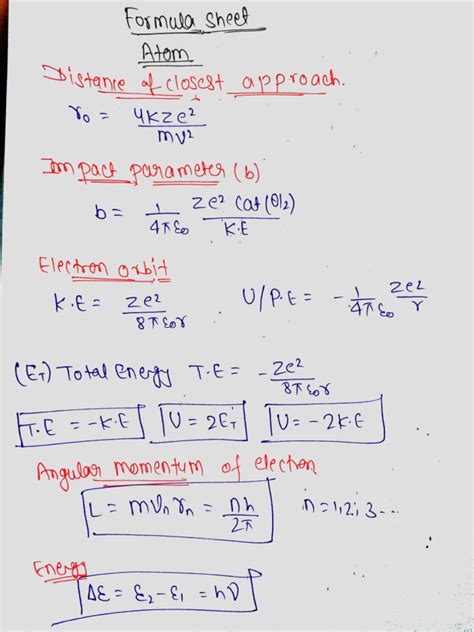 Formula sheet
Atom
Distance of closest approach.
r₀ = 4KZe² / mv²
Impact parameter (b)
b = 1/4πε₀ Ze² Cot(θ/2) / K.E
Electron orbit
K.E = Ze² / 8πε₀r U/P.E = - 1/4πε₀ Ze²/r
(E_T) Total Energy T.E = - Ze² / 8πε₀r
T.E = -K.E U = 2E_T U = -2K.E
Angular momentum of electron
L = mvₙrₙ = nh/2π n = 1,2,3---
Energy
ΔE = E₂ - E₁ = hν